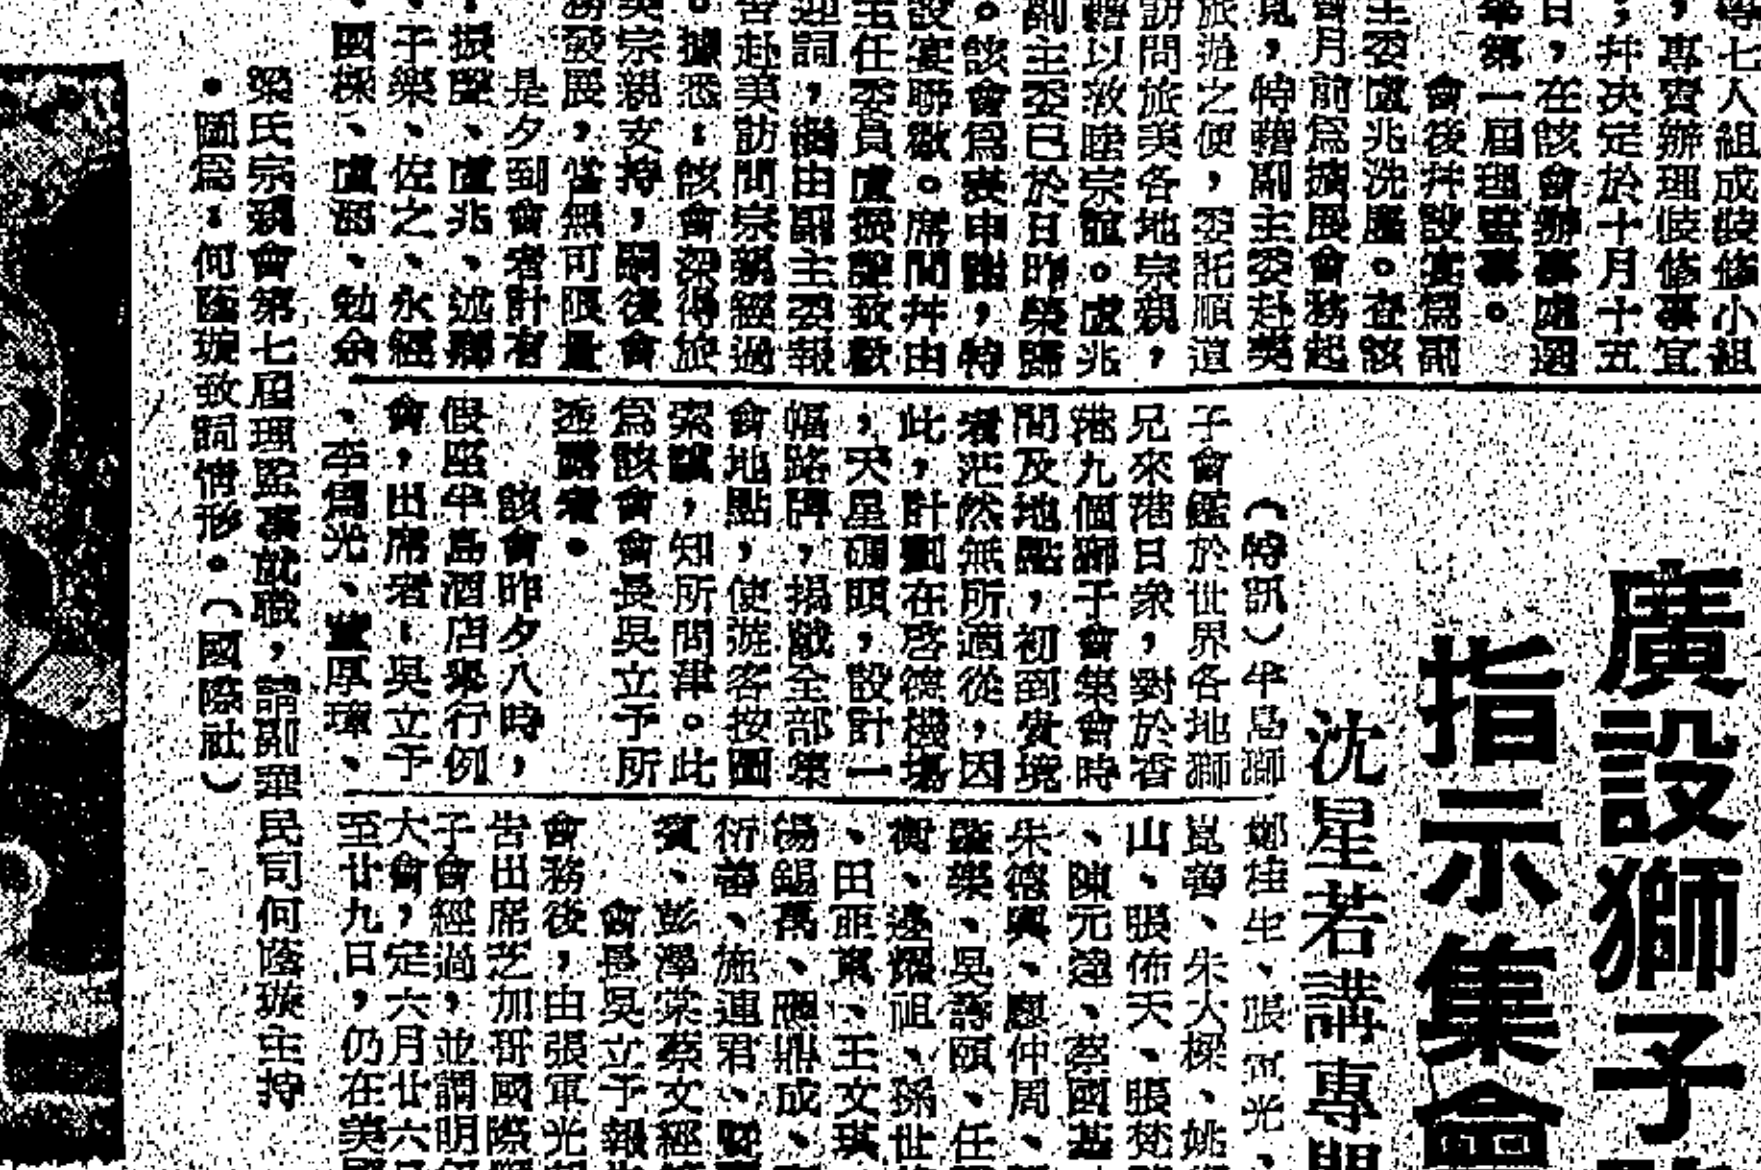 廣設獅子
指示集會
沈星若講專題
專七人組成裝修小組
，專責辦理裝修事宜
；并決定於十月十五
日，在該會辦事處選
舉第一屆理監事。
會後并設宴為副
主委盧兆洗塵。查該
會月前為擴展會務起
見，特藉副主委赴美
旅遊之便，委託順道
訪問旅美各地宗親，
藉以敦睦宗誼。盧兆
副主委已於日昨榮歸
。該會為表申謝，特
設宴聯歡。席間并由
主任委員盧振聲致歡
迎詞，繼由副主委報
告赴美訪問宗親經過
。據悉：該會深得旅
美宗親支持，嗣後會
務發展，當無可限量
是夕到會者計有
、振聲、盧兆、述鄰
、于樂、佐之、永經
、國樑、盧弼、勉余
（特訊）半島獅
子會鑑於世界各地獅
兄來港日衆，對於香
港九個獅子會集會時
間及地點，初到貴境
者茫然無所適從，因
此，計劃在啓德機塲
，天星碼頭，設計一
幅路牌，揭櫫全部集
會地點，使遊客按圖
索驥，知所問津。此
爲該會會長吳立予所
透露者。
該會昨夕八時，
假座半島酒店舉行例
會，出席者：吳立予
、李爲光、董厚璋、
鄭桂生、張雷光、
崑善、朱大樑、姚
山、張佈天、張梵
、陳元達、蔡國基
朱德興、廖仲周、
羅樂、吳壽頤、任
衡、逯耀祖、孫世
、田亜東、王文琪
湯錫萬、應鼎成、
衍善、施連君、
賓、彭澤棠蔡文經
會長吳立予報
會務後，由張軍光
告出席芝加哥國際
子會經過，並謂明年
大會，定六月廿六
至廿九日，仍在美國
梁氏宗親會第七屆理監事就職，請副華民司何蔭璇主持
。圖爲：何蔭璇致詞情形。（國際社）